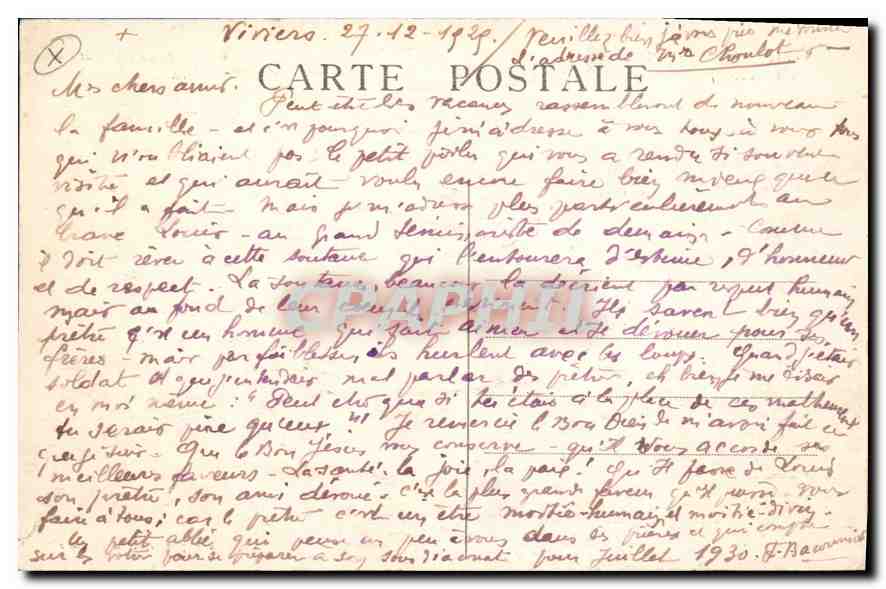 + Viviers. 27-12-1929 / Veuillez bien, je vous prie me donner
l'adresse de Mr Choulot
CARTE POSTALE
Mes chers amis.
Peut être les vacances rassembleront de nouveau
la famille - et c'est pourquoi je m'adresse à vous tous - à vous tous
qui n'oubliaient pas le petit poilu qui vous a rendu si souvent
visite et qui aurait voulu encore faire bien mieux que
qu'il a fait - Mais je m'adresse plus particulièrement au
brave Louis - au grand séminariste de demain - Comme
il doit rêver à cette soutane qui l'entourera d'estime, d'honneur
et de respect. La soutane, beaucoup la décrient par respect humain
mais au fond de leur Ils savent bien qu'un
prêtre c'est un homme qui sait aimer et se dévouer pour ses
frères - mais par faiblesse ils hurlent avec les loups. Quand j'étais
soldat et que j'entendais mal parler des prêtres, eh bien je me disais
en moi même : "Peut être que si tu étais à la place de ces malheureux
tu serais pire qu'eux" Je remercie le Bon Dieu de m'avoir fait ce
que je suis - Que le Bon Jésus vous conserve - qu'Il vous accorde ses
meilleures faveurs - La santé, la joie, la paix! Qu'Il fasse de Louis
son prêtre, son ami dévoué - c'est la plus grande faveur qu'Il puisse vous
faire à tous; car le prêtre c'est un être moitié-humain et moitié-divin.
Un petit abbé qui pense un peu à vous dans ses prières et qui compte
sur les vôtres pour se préparer à son sous diaconat pour Juillet 1930.
CPAPHIL